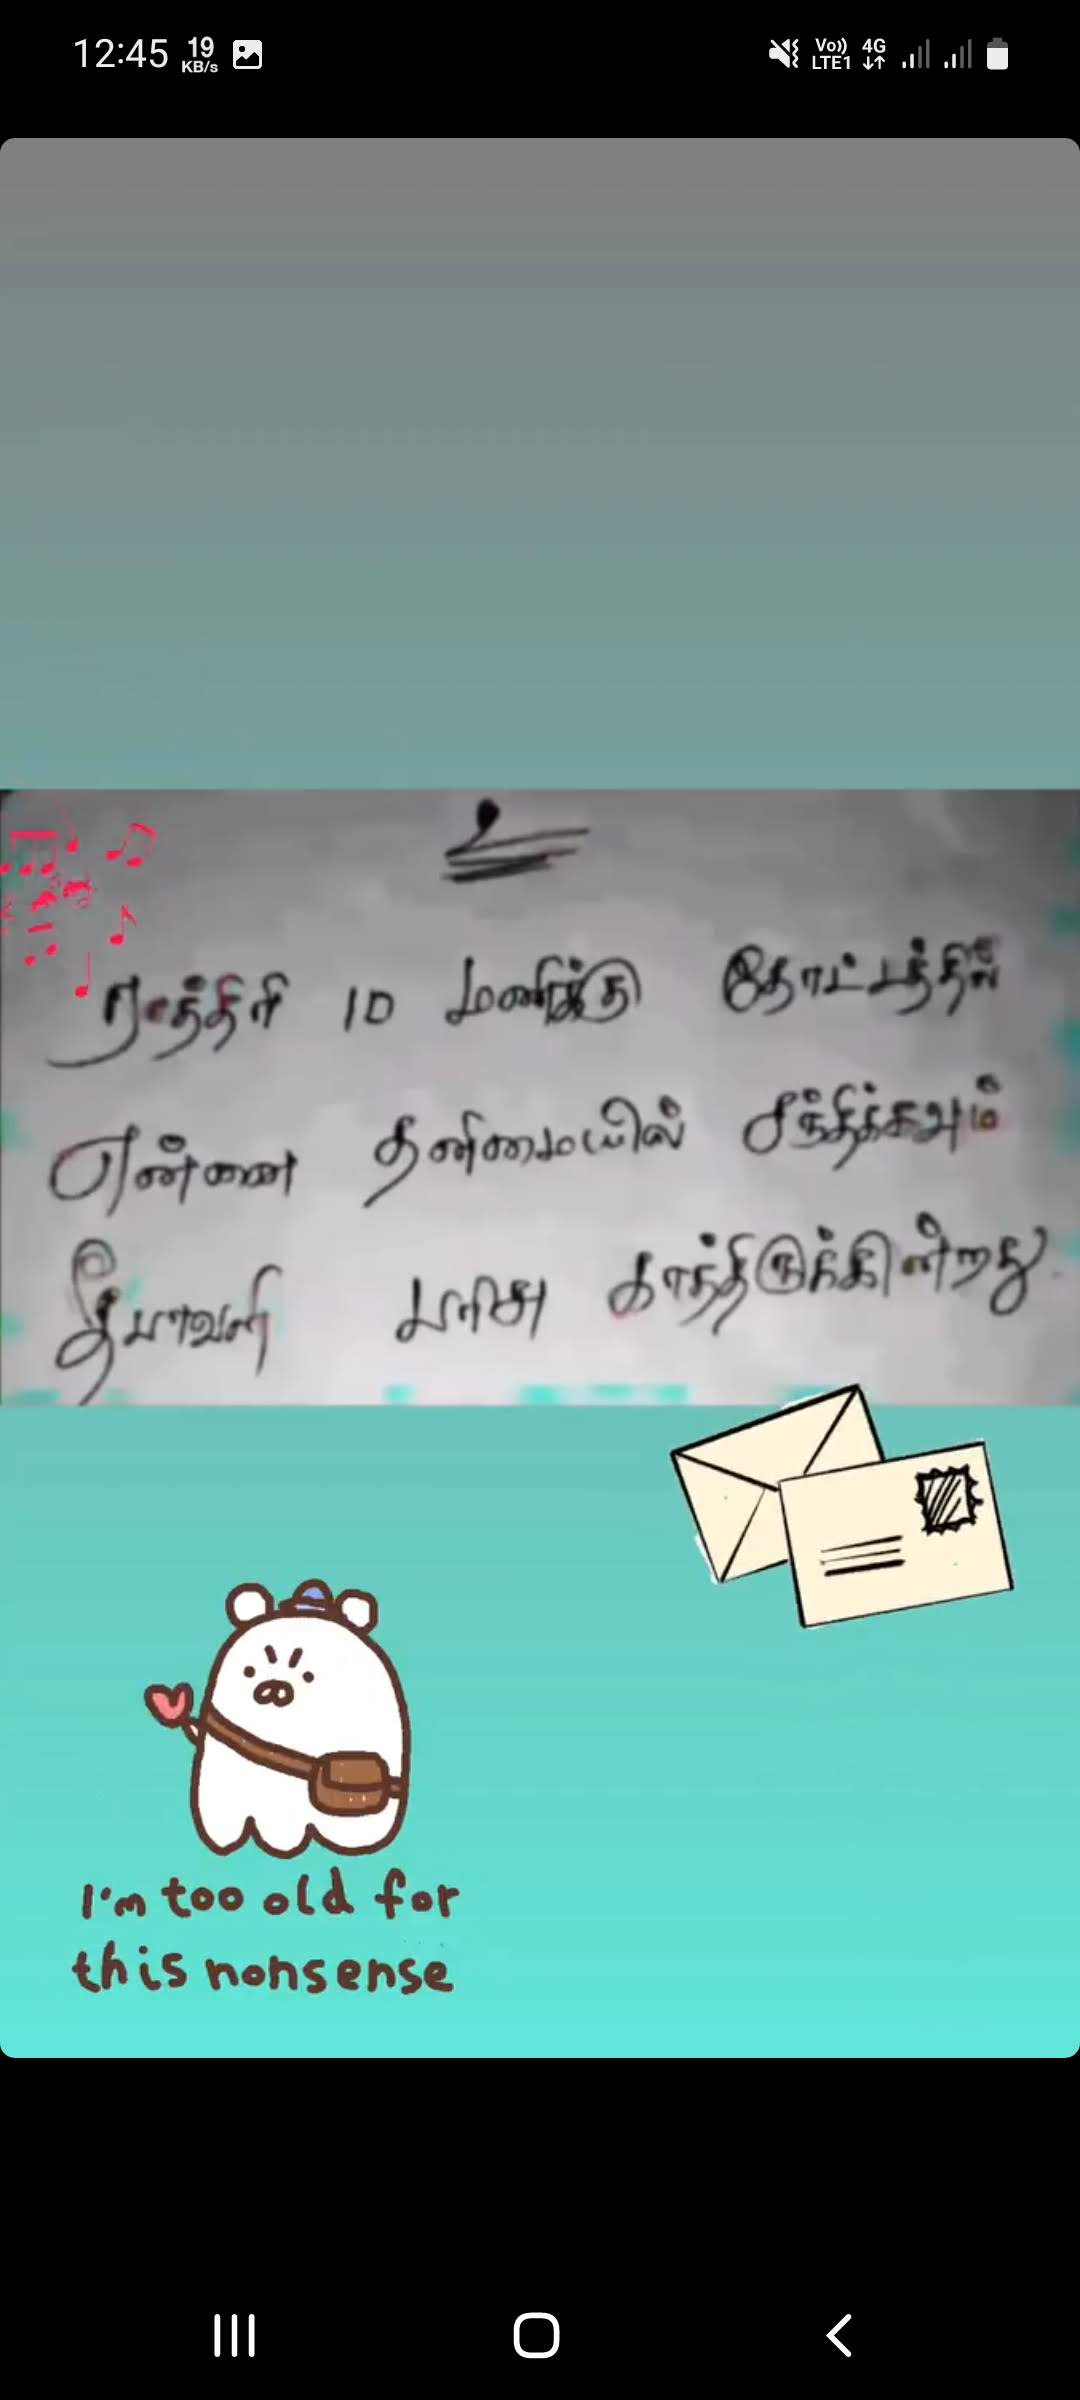 12:45 19 KB/s Vo)) LTE1 4G
உ
ராத்திரி 10 மணிக்கு தோட்டத்தில்
என்னை தனிமையில் சந்திக்கவும்
தீபாவளி பரிசு காத்திருக்கின்றது
I'm too old for
this nonsense